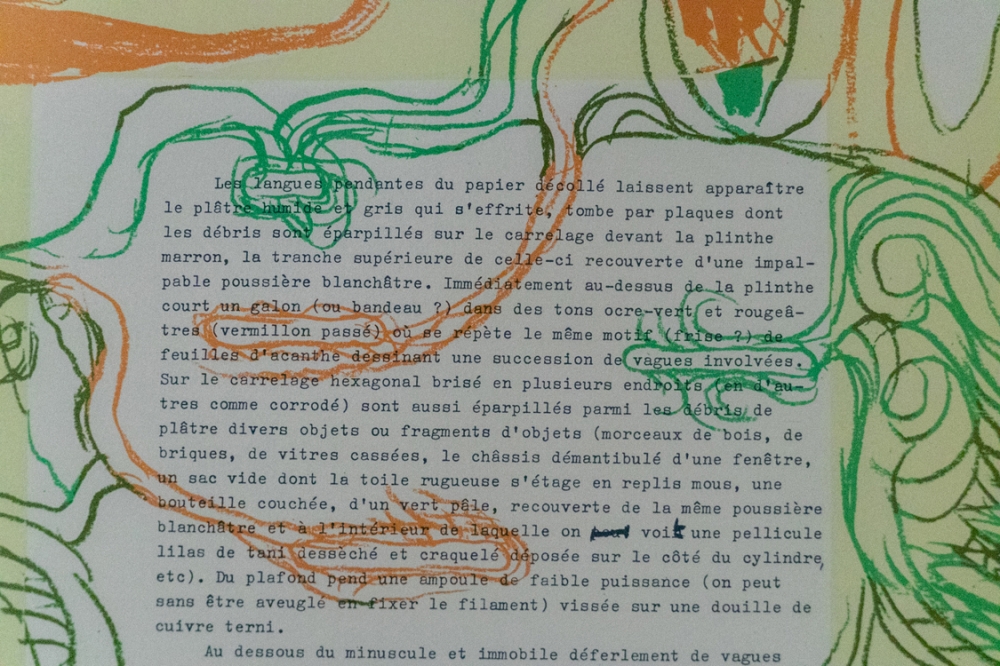 Les langues pendantes du papier décollé laissent apparaître
le plâtre humide et gris qui s'effrite, tombe par plaques dont
les débris sont éparpillés sur le carrelage devant la plinthe
marron, la tranche supérieure de celle-ci recouverte d'une impal-
pable poussière blanchâtre. Immédiatement au-dessus de la plinthe
court un galon (ou bandeau ?) dans des tons ocre-vert et rougeâ-
tres (vermillon passé) où se répète le même motif (frise ?) de
feuilles d'acanthe dessinant une succession de vagues involvées.
Sur le carrelage hexagonal brisé en plusieurs endroits (en d'au-
tres comme corrodé) sont aussi éparpillés parmi les débris de
plâtre divers objets ou fragments d'objets (morceaux de bois, de
briques, de vitres cassées, le châssis démantibulé d'une fenêtre,
un sac vide dont la toile rugueuse s'étage en replis mous, une
bouteille couchée, d'un vert pâle, recouverte de la même poussière
blanchâtre et à l'intérieur de laquelle on voit une pellicule
lilas de tani desséché et craquelé déposée sur le côté du cylindre,
etc). Du plafond pend une ampoule de faible puissance (on peut
sans être aveuglé en fixer le filament) vissée sur une douille de
cuivre terni.
Au dessous du minuscule et immobile déferlement de vagues